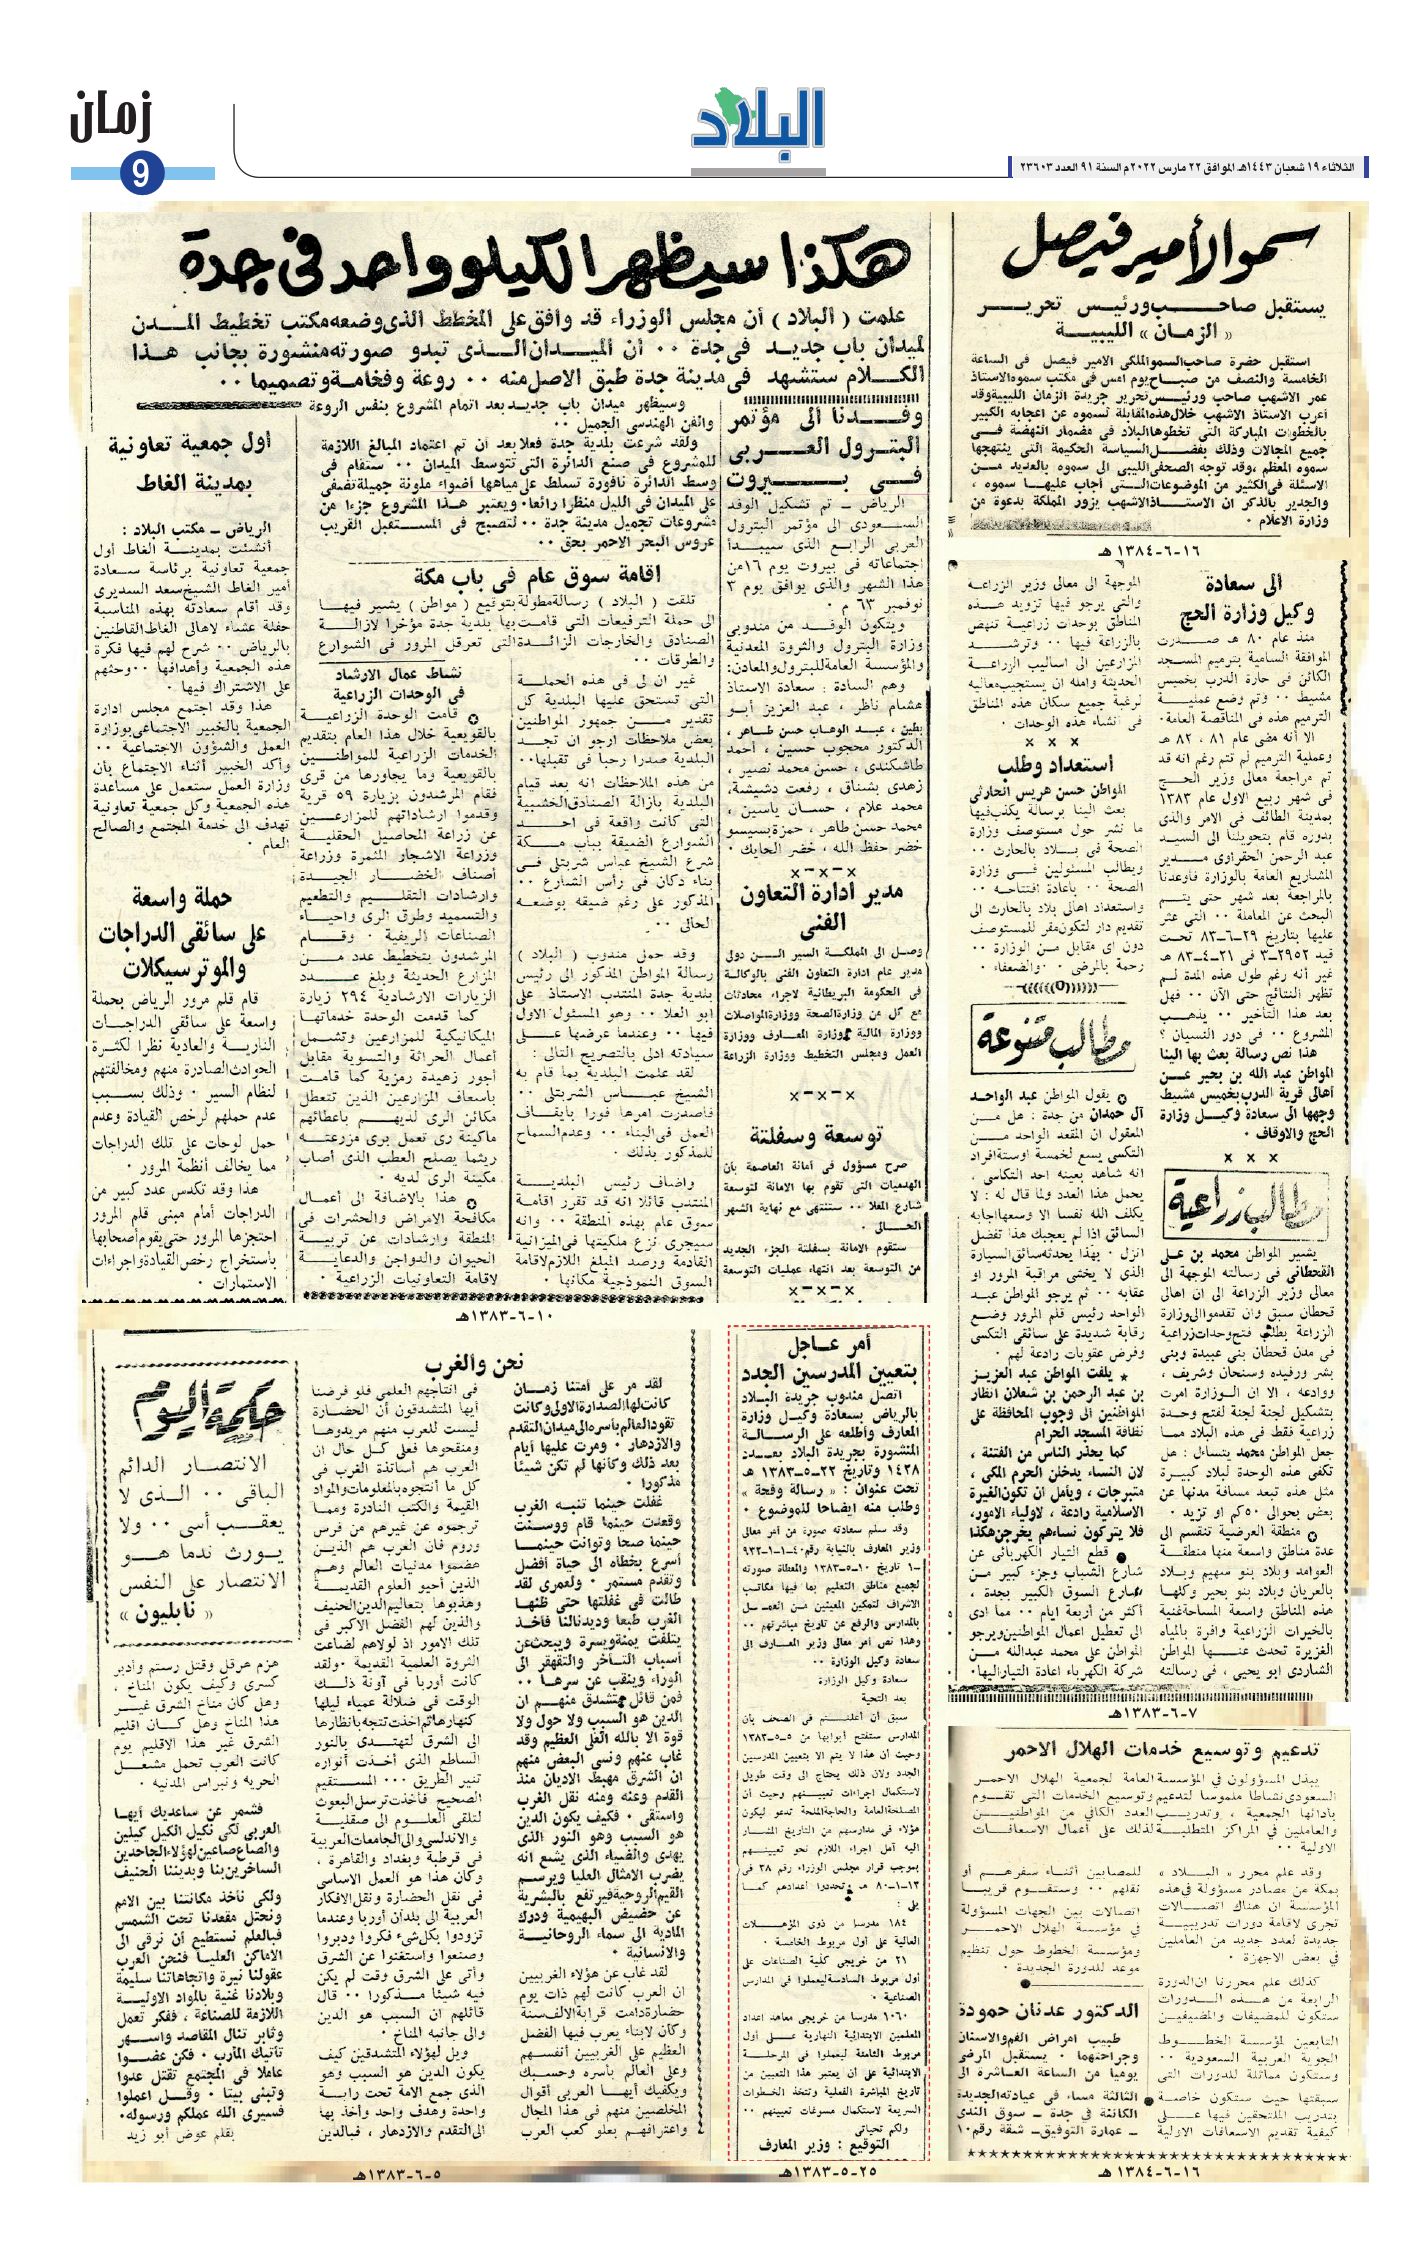 زمان
9
البلاد
الثلاثاء ١٩ شعبان ١٤٤٣هـ الموافق ٢٢ مارس ٢٠٢٢م السنة ٩١ العدد ٢٣٦٠٣
سمو الأمير فيصل
يستقبل صاحب ورئيس تحرير
« الزمان » الليبية
استقبل حضرة صاحب السمو الملكي الامير فيصل في الساعة
الخامسة والنصف من صباح يوم امس في مكتب سموه الاستاذ
عمر الاشهب صاحب ورئيس تحرير جريدة الزمان الليبية وقد
أعرب الاستاذ الاشهب خلال هذه المقابلة لسموه عن اعجابه الكبير
بالخطوات المباركة التي تخطوها البلاد في مضمار النهضة في
جميع المجالات وذلك بفضل السياسة الحكيمة التي ينتهجها
سموه المعظم ، وقد توجه الصحفي الليبي الى سموه بالعديد من
الاسئلة في الكثير من الموضوعات التي أجاب عليها سموه ،
والجدير بالذكر ان الاستاذ الاشهب يزور المملكة بدعوة من
وزارة الاعلام ٠
١٦-٦-١٣٨٤ هـ
الى سعادة
وكيل وزارة الحج
منذ عام ٨٠ هـ صدرت
الموافقة السامية بترميم المسجد
الكائن في حارة الدرب بخميس
مشيط ٠٠ وتم وضع عملية
الترميم هذه في المناقصة العامة٠
الا أنه مضى عام ٨١ ، ٨٢ هـ
وعملية الترميم لم تتم رغم انه قد
تم مراجعة معالي وزير الحج
في شهر ربيع الاول عام ١٣٨٣
بمدينة الطائف في الامر والذي
بدوره قام بتحويلنا الى السيد
عبد الرحمن الحقراوي مدير
المشاريع العامة بالوزارة فأوعدنا
بالمراجعة بعد شهر حتى يتم
البحث عن المعاملة ٠٠ التي عثر
عليها بتاريخ ٢٩-٦-٨٣ تحت
قيد ٢٩٥٢-٣ في ٢١-٤-٨٣ هـ
غير أنه رغم طول هذه المدة لم
تظهر النتائج حتى الآن ٠٠ فهل
بعد هذا التأخير ٠٠ يذهب
المشروع ٠٠ في دور النسيان ؟
هذا نص رسالة بعث بها الينا
المواطن عبد الله بن بحير عن
أهالي قرية الدرب بخميس مشيط
وجهها الى سعادة وكيل وزارة
الحج والاوقاف ٠
× × ×
مطالب زراعية
يشير المواطن محمد بن علي
القحطاني في رسالته الموجهة الى
معالي وزير الزراعة الى ان اهالي
قحطان سبق وان تقدموا الى وزارة
الزراعة بطلب فتح وحدات زراعية
في مدن قحطان بني عبيدة وبني
بشر ورفيده وسنحان وشريف ،
ووادعه ، الا ان الوزارة امرت
بتشكيل لجنة لجنة لفتح وحدة
زراعية فقط في هذه البلاد مما
جعل المواطن محمد يتساءل : هل
تكفي هذه الوحدة لبلاد كبيرة
مثل هذه تبعد مسافة مدنها عن
بعض بحوالي ٥٠كم او تزيد ٠
منطقة العرضية تنقسم الى
عدة مناطق واسعة منها منطقة
العوامد وبلاد بنو سهيم وبلاد
بالعريان وبلاد بنو بحير وكلها
هذه المناطق واسعة المساحة غنية
بالخيرات الزراعية وافرة بالمياه
الغزيرة تحدث عنها المواطن
الشاردي ابو يحيى ، في رسالته
الموجهة الى معالي وزير الزراعة
والتي يرجو فيها تزويد هذه
المناطق بوحدات زراعية تنهض
بالزراعة فيها ٠٠ وترشد
المزارعين الى اساليب الزراعة
الحديثة وامله ان يستجيب معاليه
لرغبة جميع سكان هذه المناطق
في انشاء هذه الوحدات ٠
× × ×
استعداد وطلب
المواطن حسن هريس الحارثي
بعث الينا برسالة يكذب فيها
ما نشر حول مستوصف وزارة
الصحة في بلاد بالحارث ٠٠
ويطالب المسئولين في وزارة
الصحة ٠٠ باعادة افتتاحه ٠٠
واستعداد اهالي بلاد بالحارث الى
تقديم دار لتكون مقر للمستوصف
دون اي مقابل من الوزارة ٠٠
رحمة بالمرضى ٠٠ والضعفاء ٠
مطالب متنوعة
يقول المواطن عبد الواحد
آل حمدان من جدة : هل من
المعقول ان المقعد الواحد من
التكسي يسع لخمسة او ستة افراد
انه شاهد بعينه احد التكاسي ،
يحمل هذا العدد ولما قال له : لا
يكلف الله نفسا الا وسعها اجابه
السائق اذا لم يعجبك هذا تفضل
انزل ٠ بهذا يحدثه سائق السيارة
الذي لا يخشى مراقبة المرور او
عقابه ٠٠ ثم يرجو المواطن عبد
الواحد رئيس قلم المرور وضع
رقابة شديدة على سائقي التكسي
وفرض عقوبات رادعة لهم ٠
★ يلفت المواطن عبد العزيز
بن عبد الرحمن بن شعلان انظار
المواطنين الى وجوب المحافظة على
نظافة المسجد الحرام
كما يحذر الناس من الفتنة ،
لان النساء يدخلن الحرم المكي ،
متبرجات ، ويأمل ان تكون الغيرة
الاسلامية رادعة ، لاولياء الامور،
فلا يتركون نساءهم يخرجن هكذا
● قطع التيار الكهربائي عن
شارع الشباب وجزء كبير من
شارع السوق الكبير بجدة ،
أكثر من أربعة ايام ٠٠ مما ادى
الى تعطيل اعمال المواطنين ويرجو
المواطن علي محمد عبدالله من
شركة الكهرباء اعادة التيار اليها٠
٧-٦-١٣٨٣هـ
تدعيم وتوسيع خدمات الهلال الاحمر
يبذل المسؤولون في المؤسسة العامة لجمعية الهلال الاحمر
السعودي نشاطا ملموسا لتدعيم وتوسيع الخدمات التي تقوم
بأدائها الجمعية ، وتدريب العدد الكافي من المواطنين
والعاملين في المراكز المتطلبة لذلك على أعمال الاسعافات
الاولية ٠٠
وقد علم محرر « البلاد »
بمكة من مصادر مسؤولة في هذه
المؤسسة ان هناك اتصالات
تجري لاقامة دورات تدريبية
جديدة لعدد جديد من العاملين
في بعض الاجهزة ٠
كذلك علم محررنا ان الدورة
الرابعة من هذه الدورات
ستكون للمضيفات والمضيفين
التابعين لمؤسسة الخطوط
الجوية العربية السعودية ٠٠
وستكون مماثلة للدورات التي
سبقتها حيث ستكون خاصة
بتدريب الملتحقين فيها على
كيفية تقديم الاسعافات الاولية
للمصابين أثناء سفرهم أو
نقلهم ٠٠ وستقوم قريبا
اتصالات بين الجهات المسؤولة
في مؤسسة الهلال الاحمر
ومؤسسة الخطوط حول تنظيم
موعد للدورة الجديدة ٠
الدكتور عدنان حمودة
طبيب امراض الفم والاسنان
وجراحتهما ٠ يستقبل المرضى
يوميا من الساعة العاشرة الى
الثالثة مساء في عيادته الجديدة
الكائنة في جدة - سوق الندى
- عمارة التوفيق - شقة رقم١٠
١٦-٦-١٣٨٤ هـ
هكذا سيظهر الكيلو واحد في جدة
علمت ( البلاد ) أن مجلس الوزراء قد وافق على المخطط الذي وضعه مكتب تخطيط المدن
لميدان باب جديد في جدة ٠٠ ان الميدان الذي تبدو صورته منشورة بجانب هذا
الكلام ستشهد في مدينة جدة طبق الاصل منه ٠٠ روعة وفخامة وتصميما ٠٠
وسيظهر ميدان باب جديد بعد اتمام المشروع بنفس الروعة
والفن الهندسي الجميل ٠٠
ولقد شرعت بلدية جدة فعلا بعد ان تم اعتماد المبالغ اللازمة
للمشروع في صنع الدائرة التي تتوسط الميدان ٠٠ ستقام في
وسط الدائرة نافورة تسلط على مياهها أضواء ملونة جميلة تضفي
على الميدان في الليل منظرا رائعا٠ ويعتبر هذا المشروع جزءا من
مشروعات تجميل مدينة جدة ٠٠ لتصبح في المستقبل القريب
عروس البحر الاحمر بحق ٠٠
وفدنا الى مؤتمر
البترول العربي
في بيروت
الرياض - تم تشكيل الوفد
السعودي الى مؤتمر البترول
العربي الرابع الذي سيبدأ
اجتماعاته في بيروت يوم ١٦من
هذا الشهر والذي يوافق يوم ٣
نوفمبر ٦٣ م ٠
ويتكون الوفد من مندوبي
وزارة البترول والثروة المعدنية
والمؤسسة العامة للبترول والمعادن:
وهم السادة : سعادة الاستاذ
هشام ناظر ، عبد العزيز أبو
بطين ، عبد الوهاب حسن طاهر ،
الدكتور محجوب حسنين ، أحمد
طاشكندي ، حسن محمد نصير ،
زهدي بشناق ، رفعت دشيشة،
محمد علام ، حسان ياسين ،
محمد حسن طاهر ، حمزة بسيسو
خضر حفظ الله ، خضر الحايك ٠
×-×-×
مدير ادارة التعاون
الفني
وصل الى المملكة السير الن دولي
مدير عام ادارة التعاون الفني بالوكالة
في الحكومة البريطانية لاجراء محادثات
مع كل من وزارة الصحة ووزارة المواصلات
ووزارة المالية ووزارة المعارف ووزارة
العمل ومجلس التخطيط ووزارة الزراعة
×-×-×
توسعة وسفلتة
صرح مسؤول في أمانة العاصمة بأن
الهدميات التي تقوم بها الامانة لتوسعة
شارع المعلا ٠٠ ستنتهي مع نهاية الشهر
الحالي ٠
ستقوم الامانة بسفلتة الجزء الجديد
من التوسعة بعد انتهاء عمليات التوسعة
×-×-×
اقامة سوق عام في باب مكة
تلقت ( البلاد ) رسالة مطولة بتوقيع ( مواطن ) يشير فيها
الى حملة الترفيعات التي قامت بها بلدية جدة مؤخرا لازالة
الصنادق والخارجات الزائدة التي تعرقل المرور في الشوارع
والطرقات ٠٠
غير ان لي في هذه الحملة
التي تستحق عليها البلدية كل
تقدير من جمهور المواطنين
بعض ملاحظات ارجو ان تجد
البلدية صدرا رحبا في تقبلها٠٠
من هذه الملاحظات انه بعد قيام
البلدية بازالة الصنادق الخشبية
التي كانت واقعة في احد
الشوارع الضيقة بباب مكة
شرع الشيخ عباس شربتلي في
بناء دكان في رأس الشارع ٠٠
المذكور على رغم ضيقه بوضعه
الحالي ٠٠
وقد حمل مندوب ( البلاد )
رسالة المواطن المذكور الى رئيس
بلدية جدة المنتدب الاستاذ علي
ابو العلا ٠٠ وهو المسئول الاول
فيها ٠٠ وعندما عرضها على
سيادته ادلى بالتصريح التالي :
لقد علمت البلدية بما قام به
الشيخ عباس الشربتلي ٠٠
فاصدرت امرها فورا بايقاف
العمل في البناء ٠٠ وعدم السماح
للمذكور بذلك ٠
واضاف رئيس البلدية
المنتدب قائلا انه قد تقرر اقامة
سوق عام بهذه المنطقة ٠٠ وانه
سيجري نزع ملكيتها في الميزانية
القادمة ورصد المبلغ اللازم لاقامة
السوق النموذجية مكانها ٠
نشاط عمال الارشاد
في الوحدات الزراعية
قامت الوحدة الزراعية
بالقويعية خلال هذا العام بتقديم
الخدمات الزراعية للمواطنين
بالقويعية وما يجاورها من قرى
فقام المرشدون بزيارة ٥٩ قرية
وقدموا ارشاداتهم للمزارعين
عن زراعة المحاصيل الحقلية
وزراعة الاشجار المثمرة وزراعة
أصناف الخضار الجيدة
وارشادات التقليم والتطعيم
والتسميد وطرق الري واحياء
الصناعات الريفية ٠ وقام
المرشدون بتخطيط عدد من
المزارع الحديثة وبلغ عدد
الزيارات الارشادية ٢٩٤ زيارة
كما قدمت الوحدة خدماتها
الميكانيكية للمزارعين وتشمل
أعمال الحراثة والتسوية مقابل
أجور زهيدة رمزية كما قامت
بأسعاف المزارعين الذين تتعطل
مكائن الري لديهم باعطائهم
ماكينة ري تعمل بري مزرعته
ريثما يصلح العطب الذي أصاب
مكينة الري لديه ٠
هذا بالاضافة الى أعمال
مكافحة الامراض والحشرات في
المنطقة وارشادات عن تربية
الحيوان والدواجن والدعاية
لاقامة التعاونيات الزراعية ٠
أول جمعية تعاونية
بمدينة الغاط
الرياض - مكتب البلاد :
أنشئت بمدينة الغاط أول
جمعية تعاونية برئاسة سعادة
أمير الغاط الشيخ سعد السديري
وقد أقام سعادته بهذه المناسبة
حفلة عشاء لاهالي الغاط القاطنين
بالرياض ٠٠ شرح لهم فيها فكرة
هذه الجمعية وأهدافها ٠٠ وحثهم
على الاشتراك فيها ٠
هذا وقد اجتمع مجلس ادارة
الجمعية بالخبير الاجتماعي بوزارة
العمل والشؤون الاجتماعية ٠٠
وأكد الخبير أثناء الاجتماع بأن
وزارة العمل ستعمل على مساعدة
هذه الجمعية وكل جمعية تعاونية
تهدف الى خدمة المجتمع والصالح
العام ٠
حملة واسعة
على سائقي الدراجات
والموترسيكلات
قام قلم مرور الرياض بحملة
واسعة على سائقي الدراجات
النارية والعادية نظرا لكثرة
الحوادث الصادرة منهم ومخالفتهم
لنظام السير ٠ وذلك بسبب
عدم حملهم لرخص القيادة وعدم
حمل لوحات على تلك الدراجات
مما يخالف أنظمة المرور ٠
هذا وقد تكدس عدد كبير من
الدراجات أمام مبنى قلم المرور
احتجزها المرور حتى يقوم أصحابها
باستخراج رخص القيادة واجراءات
الاستمارات ٠
١٠-٦-١٣٨٣هـ
أمر عاجل
بتعيين المدرسين الجدد
اتصل مندوب جريدة البلاد
بالرياض بسعادة وكيل وزارة
المعارف وأطلعه على الرسالة
المنشورة بجريدة البلاد بعدد
١٤٣٨ وتاريخ ٢٢-٥-١٣٨٣ هـ
تحت عنوان : « رسالة وقحة »
وطلب منه ايضاحا للموضوع ٠
وقد سلم سعادته صورة من أمر معالي
وزير المعارف بالنيابة رقم٤٠-١-١-٩٣٢
-١ تاريخ ١٠-٥-١٣٨٣ والمعطاة صورته
لجميع مناطق التعليم بما فيها مكاتب
الاشراف لتمكين المعينين من العمل
بالمدارس والرفع عن تاريخ مباشرتهم ٠٠
وهذا نص أمر معالي وزير المعارف الى
سعادة وكيل الوزارة ٠٠
سعادة وكيل الوزارة
بعد التحية
سبق أن أعلنتم في الصحف بأن
المدارس ستفتح أبوابها من ٥-٥-١٣٨٣
وحيث أن هذا لا يتم الا بتعيين المدرسين
الجدد ولان ذلك يحتاج الى وقت طويل
لاستكمال اجراءات تعيينهم وحيث أن
المصلحة العامة والحاجة الملحة تدعو ليكون
هؤلاء في مدارسهم من التاريخ المشار
اليه آمل اجراء اللازم نحو تعيينهم
بموجب قرار مجلس الوزراء رقم ٣٨ في
١٣-١-٨٠ هـ وتحددوا أعدادهم كما
يلي :
١٨٤ مدرسا من ذوي المؤهلات
العالية على أول مربوط الخامسة ٠
٢١ من خريجي كلية الصناعات على
أول مربوط السادسة ليعملوا في المدارس
الصناعية ٠
١٠٦٠ مدرسا من خريجي معاهد اعداد
المعلمين الابتدائية النهارية على أول
مربوط الثامنة ليعملوا في المرحلة
الابتدائية على أن يعتبر هذا التعيين من
تاريخ المباشرة الفعلية وتتخذ الخطوات
السريعة لاستكمال مسوغات تعيينهم ٠٠
ولكم تحياتي
التوقيع : وزير المعارف
٢٥-٥-١٣٨٣هـ
نحن والغرب
لقد مر على أمتنا زمان
كانت لها الصدارة الاولى وكانت
تقود العالم بأسره الى ميدان التقدم
والازدهار ٠ ومرت عليها أيام
بعد ذلك وكأنها لم تكن شيئا
مذكورا ٠
غفلت حينما تنبه الغرب
وقعدت حينما قام ووسنت
حينما صحا وتوانت حينما
أسرع بخطاه الى حياة أفضل
وتقدم مستمر ٠ ولعمري لقد
طالت في غفلتها حتى ظنها
الغرب طبعا وديدنا لنا فأخذ
يتلفت يمنة ويسرة ويبحث عن
أسباب التأخر والتقهقر الى
الوراء وينقب عن سرها ٠٠
فمن قائل متشدق منهم ان
الدين هو السبب ولا حول ولا
قوة الا بالله العلي العظيم وقد
غاب عنهم ونسي البعض منهم
ان الشرق مهبط الاديان منذ
القدم وعنه ومنه نقل الغرب
واستقى ٠ فكيف يكون الدين
هو السبب وهو النور الذي
يهدي والضياء الذي يشع انه
يضرب الامثال العليا ويرسم
القيم الروحية فيرتفع بالبشرية
عن حضيض البهيمية ودرك
المادية الى سماء الروحانية
والانسانية ٠
لقد غاب عن هؤلاء الغربيين
ان العرب كانت لهم ذات يوم
حضارة دامت قرابة الالف سنة
وكان لابناء يعرب فيها الفضل
العظيم على الغربيين أنفسهم
وعلى العالم بأسره وحسبك
ويكفيك أيها العربي أقوال
المخلصين منهم في هذا المجال
واعترافهم بعلو كعب العرب
في انتاجهم العلمي فلو فرضنا
أيها المتشدقون أن الحضارة
ليست للعرب منهم مريدوها
ومنقحوها فعلى كل حال ان
العرب هم أساتذة الغرب في
كل ما أنتجوه بالمعلومات والمواد
القيمة والكتب النادرة ومما
ترجموه عن غيرهم من فرس
وروم فان العرب هم الذين
هضموا مدنيات العالم وهم
الذين أحيو العلوم القديمة
وهذبوها بتعاليم الدين الحنيف
والذين لهم الفضل الاكبر في
تلك الامور اذ لولاهم لضاعت
الثروة العلمية القديمة ٠ ولقد
كانت أوربا في آونة ذلك
الوقت في ضلالة عمياء ليلها
كنهارها ثم اخذت تتجه بانظارها
الى الشرق لتهتدي بالنور
الساطع الذي أخذت أنواره
تنير الطريق ٠٠٠ المستقيم
الصحيح فأخذت ترسل البعوث
لتلقي العلوم الى صقلية
والاندلسي والى الجامعات العربية
في قرطبة وبغداد والقاهرة ،
وكان هذا هو العمل الاساسي
في نقل الحضارة ونقل الافكار
العربية الى بلدان أوربا وعندما
تزودوا بكل شيء فكروا ودبروا
وصنعوا واستغنوا عن الشرق
وأتى على الشرق وقت لم يكن
فيه شيئا مذكورا ٠٠ قال
قائلهم ان السبب هو الدين
والى جانبه المناخ ٠
ويل لهؤلاء المتشدقين كيف
يكون الدين هو السبب وهو
الذي جمع الامة تحت راية
واحدة وهدف واحد وأخذ بها
الى التقدم والازدهار ، فبالدين
حكمة اليوم
الانتصار الدائم
الباقي ٠٠ الذي لا
يعقب أسى ٠٠ ولا
يورث ندما هو
الانتصار على النفس
« نابليون »
هزم هرقل وقتل رستم وأدبر
كسرى وكيف يكون المناخ ،
وهل كان مناخ الشرق غير
هذا المناخ وهل كان اقليم
الشرق غير هذا الاقليم يوم
كانت العرب تحمل مشعل
الحرية ونبراس المدنية ٠
فشمر عن ساعديك أيها
العربي لكي نكيل الكيل كيلين
والصاع صاعين لهؤلاء الجاحدين
الساخرين بنا وبديننا الحنيف
ولكي نأخذ مكانتنا بين الامم
ونحتل مقعدنا تحت الشمس
فبالعلم نستطيع أن نرقى الى
الاماكن العليا فنحن العرب
عقولنا نيرة واتجاهاتنا سليمة
وبلادنا غنية بالمواد الاولية
اللازمة للصناعة ، ففكر تعمل
وثابر تنال المقاصد واسهر
تأتيك المآرب ٠ فكن عضوا
عاملا في المجتمع تقتل عدوا
وتبني بيتا ٠ وقل اعملوا
فسيرى الله عملكم ورسوله٠
بقلم عوض أبو زيد
٥-٦-١٣٨٣هـ